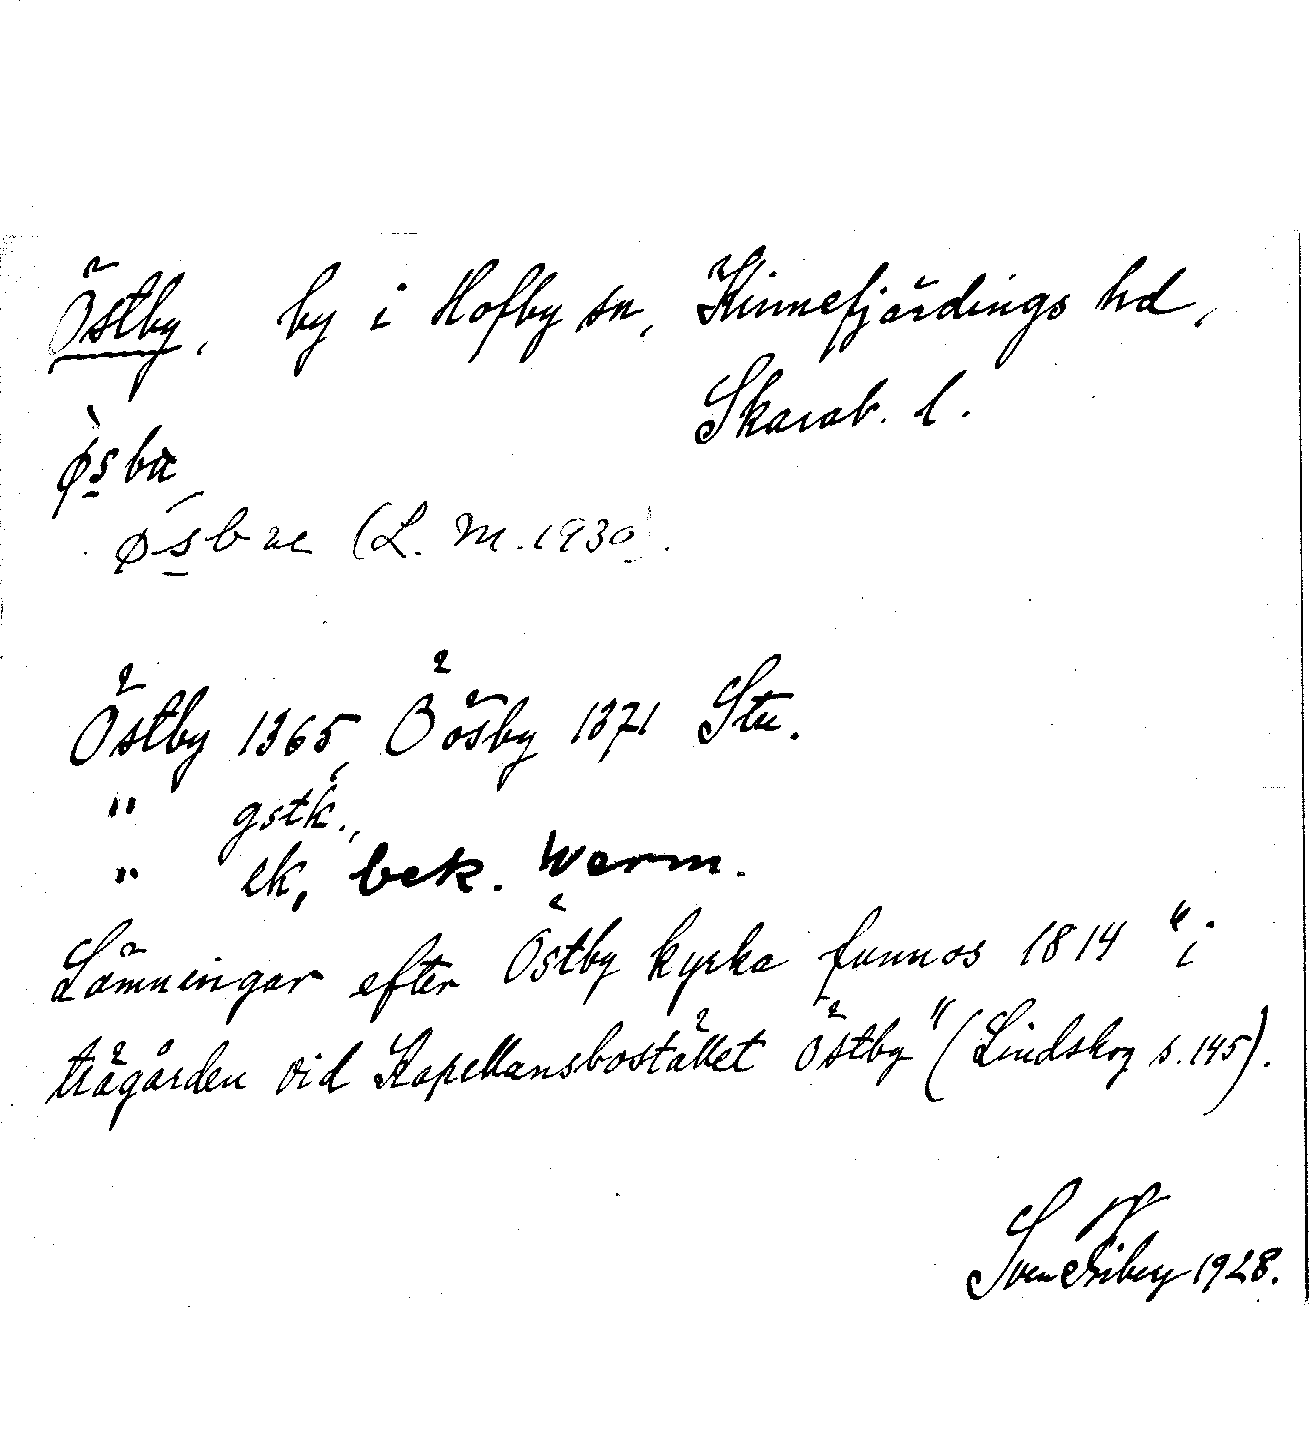 Östby, by i Hofby sn, Kinnefjärdings hd,
Skarab. l.
ø̀sba
øsbae (L. M. 1930).
Östby 1365, Öösby 1371 Stu.
" gstk.,
" ek, bek. Werm.
Lämningar efter Östby kyrka funnos 1814 "i
trägården vid Kapellansbostället Östby" (Lindskog s. 145).
Sven 1928.